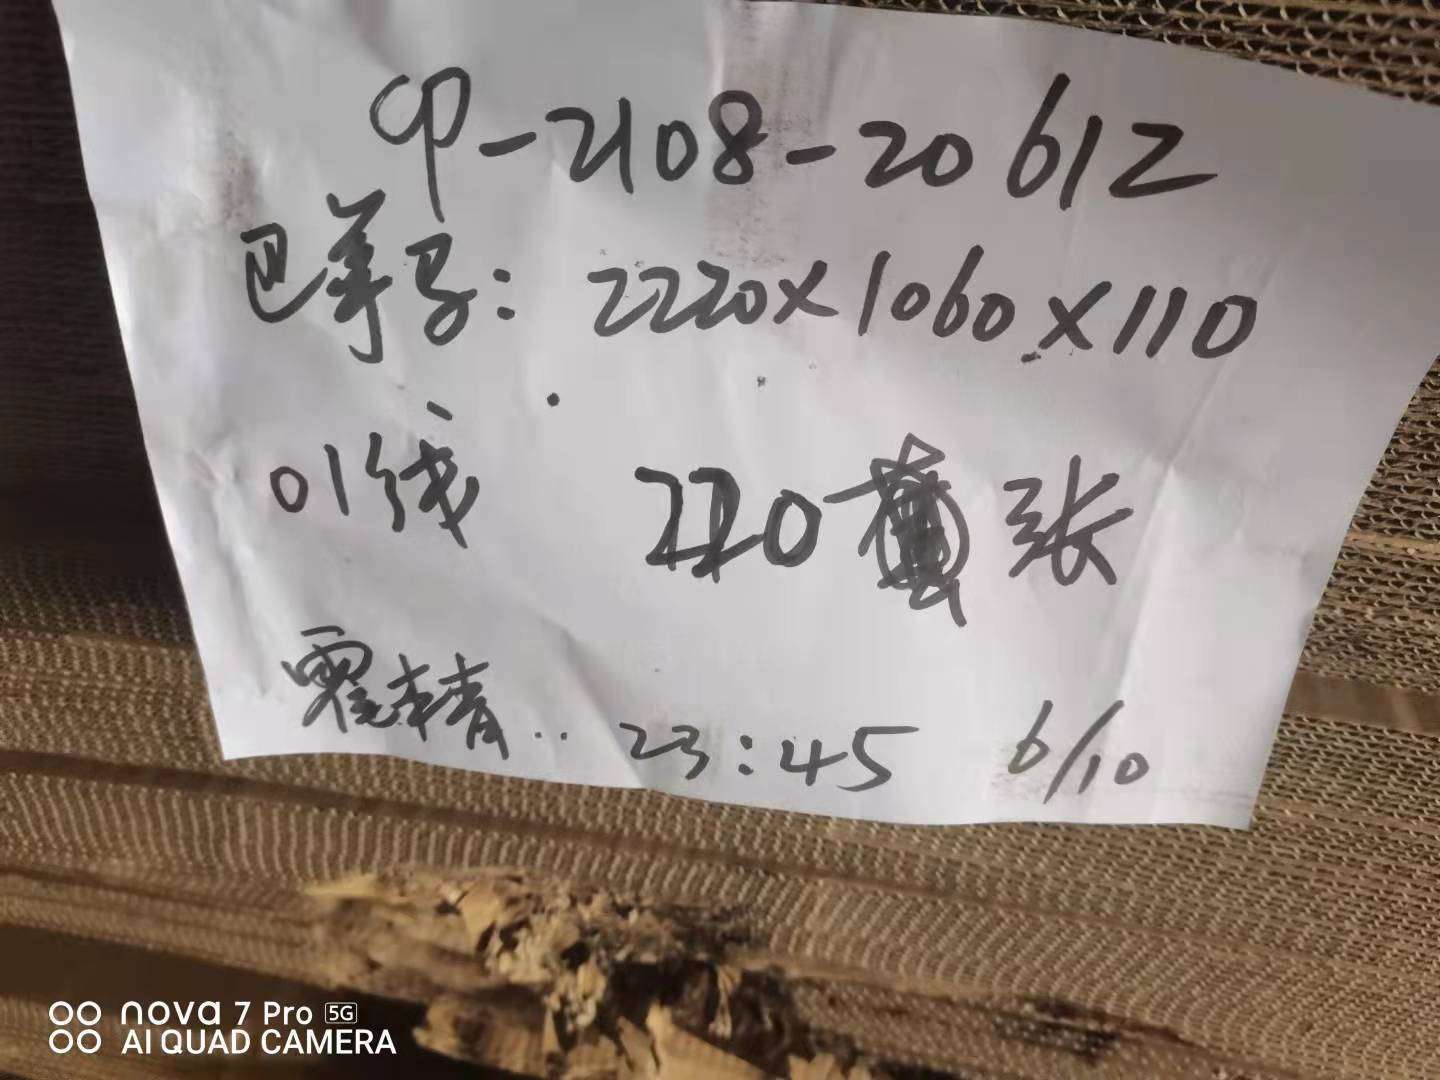 CP-2108-20612
巴革号: 2220×1060×110
01线 220 张
霍精.. 23:45 6/10
nova 7 Pro 5G
AI QUAD CAMERA